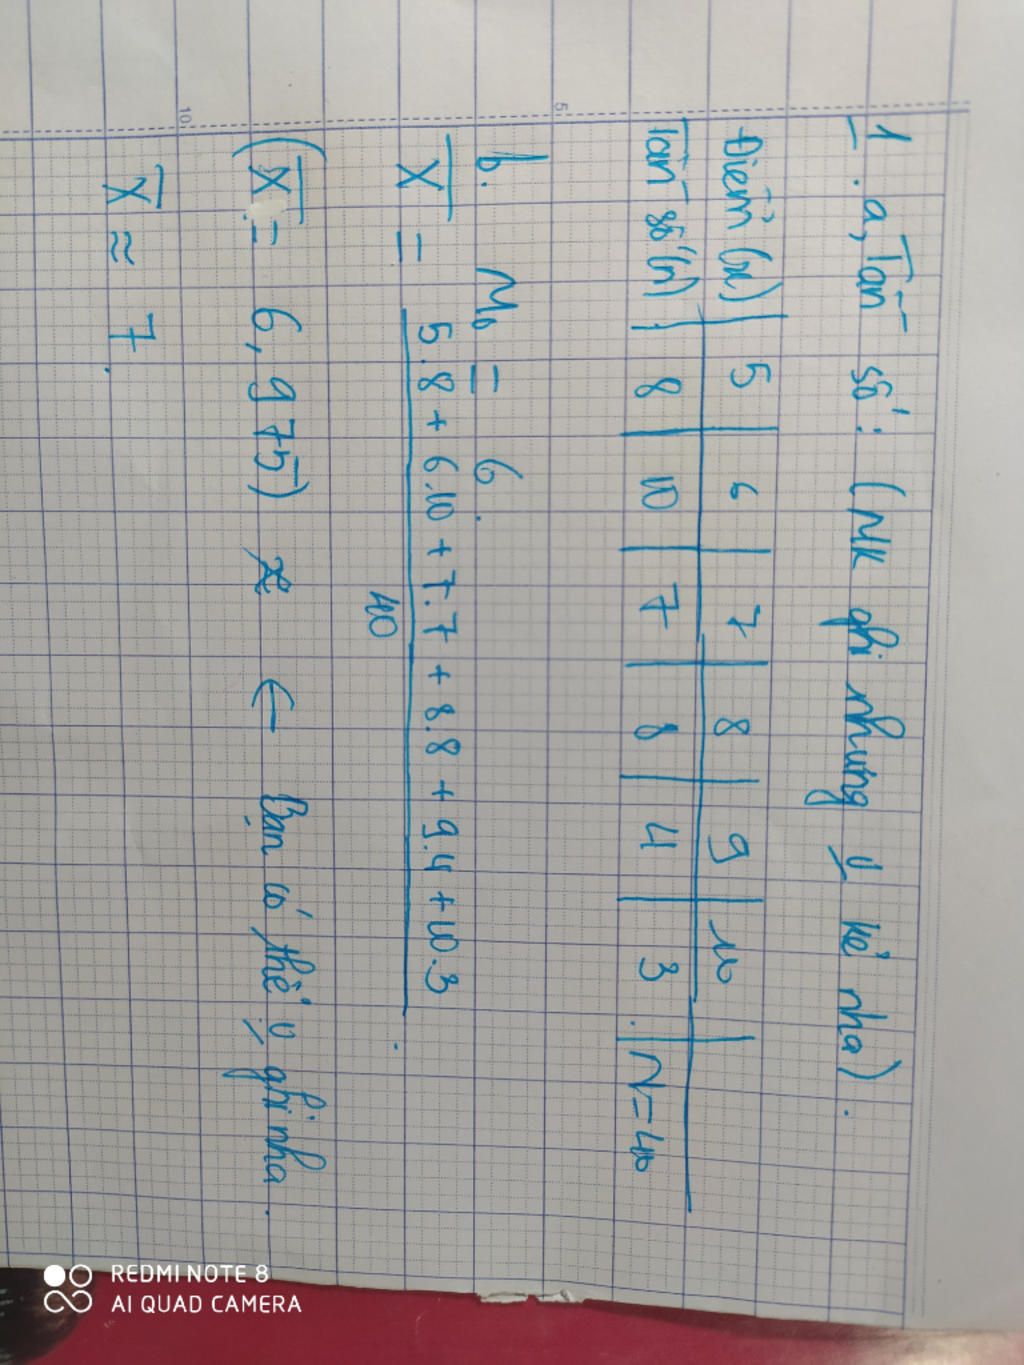 1. a, Tần số: (MK ghi nhưng ý kẻ nha).
Điểm (x) | 5 | 6 | 7 | 8 | 9 | 10 |
Tần số (n) | 8 | 10 | 7 | 8 | 4 | 3 | N = 40
b. M₀ = 6.
X̄ = 5.8 + 6.10 + 7.7 + 8.8 + 9.4 + 10.3
40
(X̄ = 6,975) ← Bạn có thể ý ghi nha.
X̄ ≈ 7.
5
10
REDMI NOTE 8
AI QUAD CAMERA